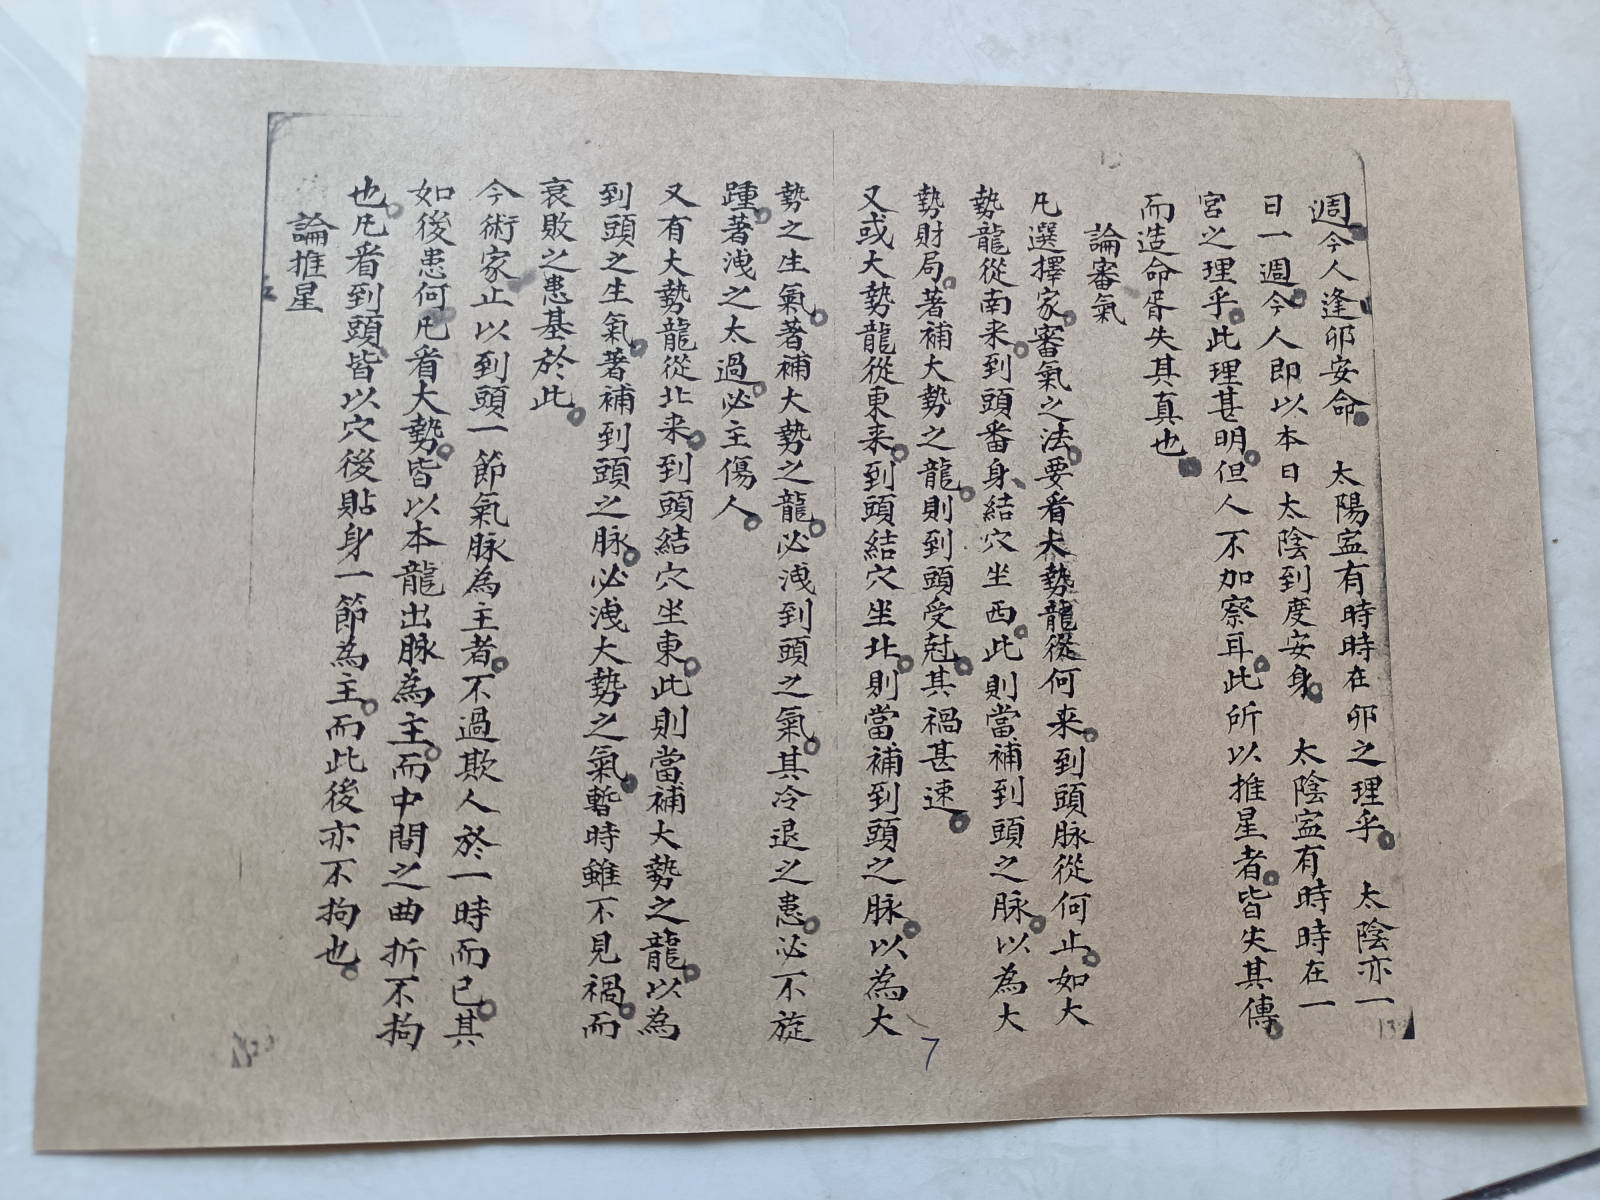 週今人逢卯安命 太陽寍有時時在卯之理乎 太陰亦一
日一週今人即以本日太陰到度安身 太陰寍有時時在一
宮之理乎此理甚明但人不加察耳此所以推星者皆失其傳
而造命胥失其真也
論審氣
凡選擇家審氣之法要看大勢龍從何来到頭脉從何止如大
勢龍從南来到頭番身結穴坐西此則當補到頭之脉以為大
勢財局著補大勢之龍則到頭受尅其禍甚速
又或大勢龍從東来到頭結穴坐北則當補到頭之脉以為大
勢之生氣著補大勢之龍必洩到頭之氣其冷退之患必不旋
踵著洩之太過必主傷人
又有大勢龍從北来到頭結穴坐東此則當補大勢之龍以為
到頭之生氣著補到頭之脉必洩大勢之氣暫時雖不見禍而
衰敗之患基於此
今術家止以到頭一節氣脉為主者不過欺人於一時而已其
如後患何凡看大勢皆以本龍出脉為主而中間之曲折不拘
也凡看到頭皆以穴後貼身一節為主而此後亦不拘也
論推星
7